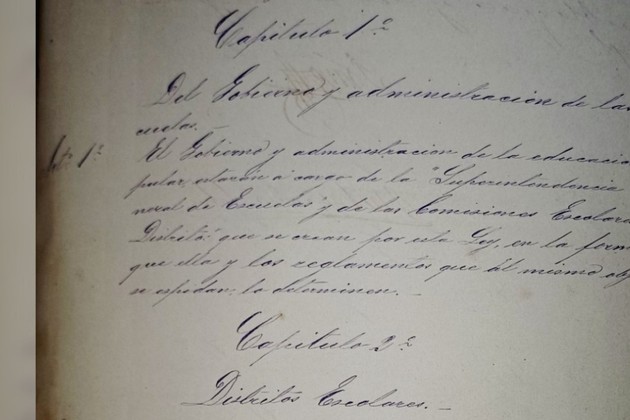 Capitulo 1º
Del Gobierno y administracion de las
cuelas.-
Art. 1º El Gobierno y administracion de la educacio
pular, estarán á cargo de la "Superintendencia
neral de Escuelas" y de las Comisiones Escolare
Distrito: que se crean por esta Ley, en la form
que ella y los reglamentos que al mismo obj
se espidan, lo determinen.-
Capitulo 2º
Distritos Escolares.-